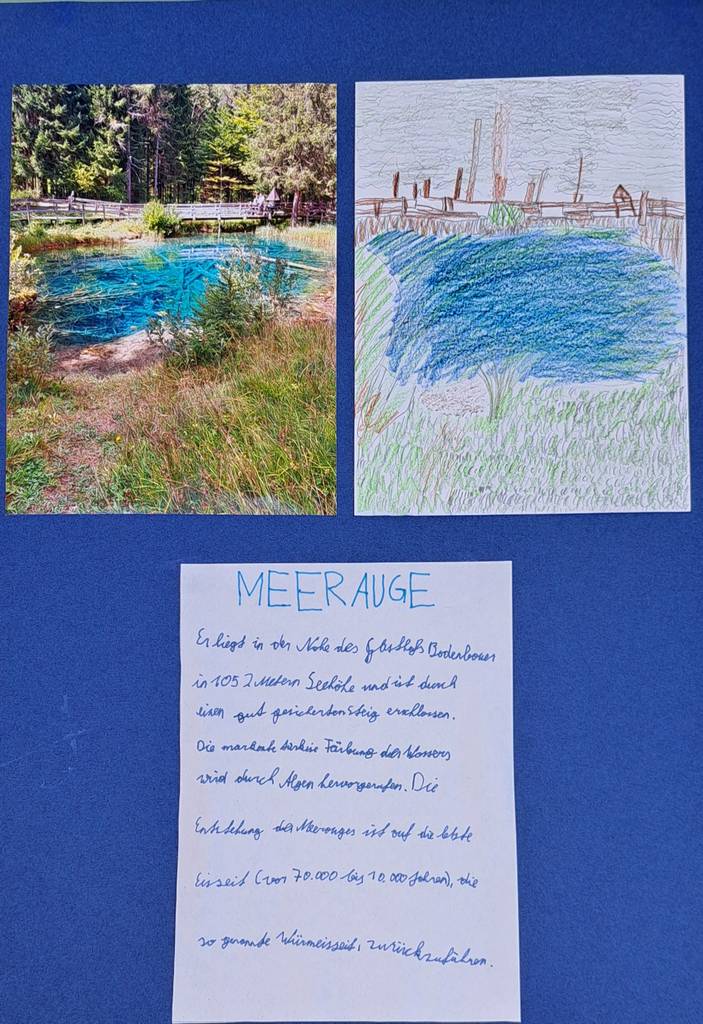 MEERAUGE
Er liegt in der Nähe des Gasthofs Bodenbauer
in 1052 Metern Seehöhe und ist durch
einen gut gesicherten Steig erschlossen.
Die markante türkise Färbung des Wassers
wird durch Algen hervorgerufen. Die
Entstehung des Meerauges ist auf die letzte
Eiszeit (vor 70.000 bis 10.000 Jahren), die
so genannte Würmeiszeit, zurückzuführen.